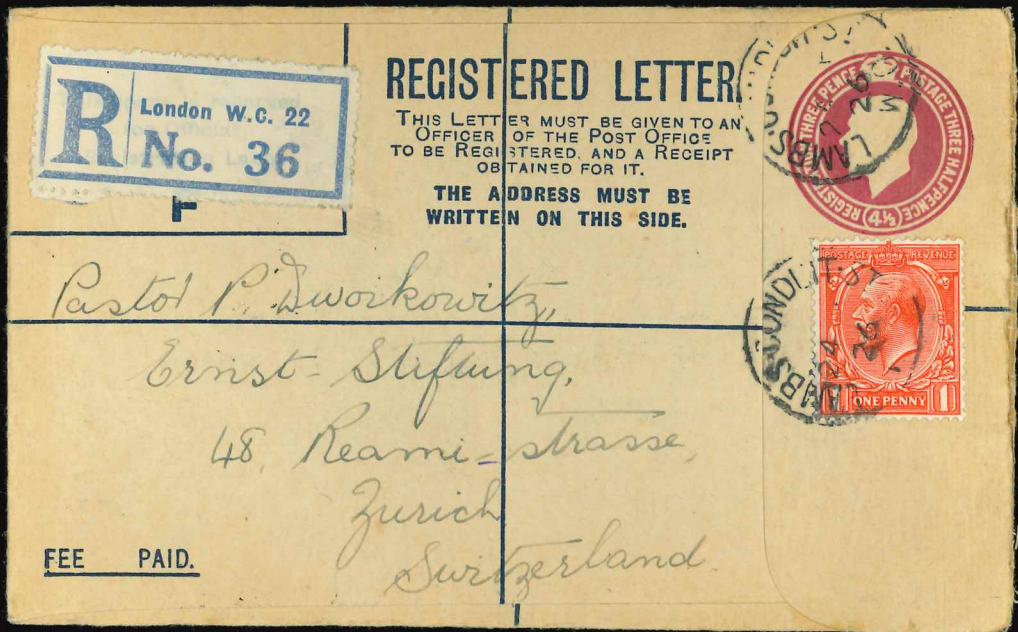 R
London W.C. 22
No. 36
F
REGISTERED LETTER
THIS LETTER MUST BE GIVEN TO AN
OFFICER OF THE POST OFFICE
TO BE REGISTERED, AND A RECEIPT
OBTAINED FOR IT.
THE ADDRESS MUST BE
WRITTEN ON THIS SIDE.
POSTAGE THREE HALFPENCE
THREE PENCE
(4½)
LAMBS
26
POSTAGE REVENUE
1 ONE PENNY 1
LAMBS CONDUIT. ST
24
26
Pastor P. Dworkowitz,
Ernst-Stiftung,
48, Reami-strasse,
Zurich
Switzerland.
FEE PAID.